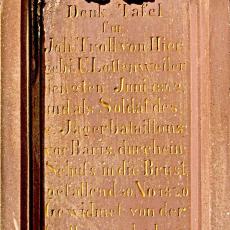 Denk Tafel
für
Joh. Troll von Hier
geb: z: Lottenweiler
Juni
und als Soldat des
Jäger Bataillons
vor Paris, durch ein
Schuß in die Brust
gefallen d 30 Nov 1870
Gewidmet von der